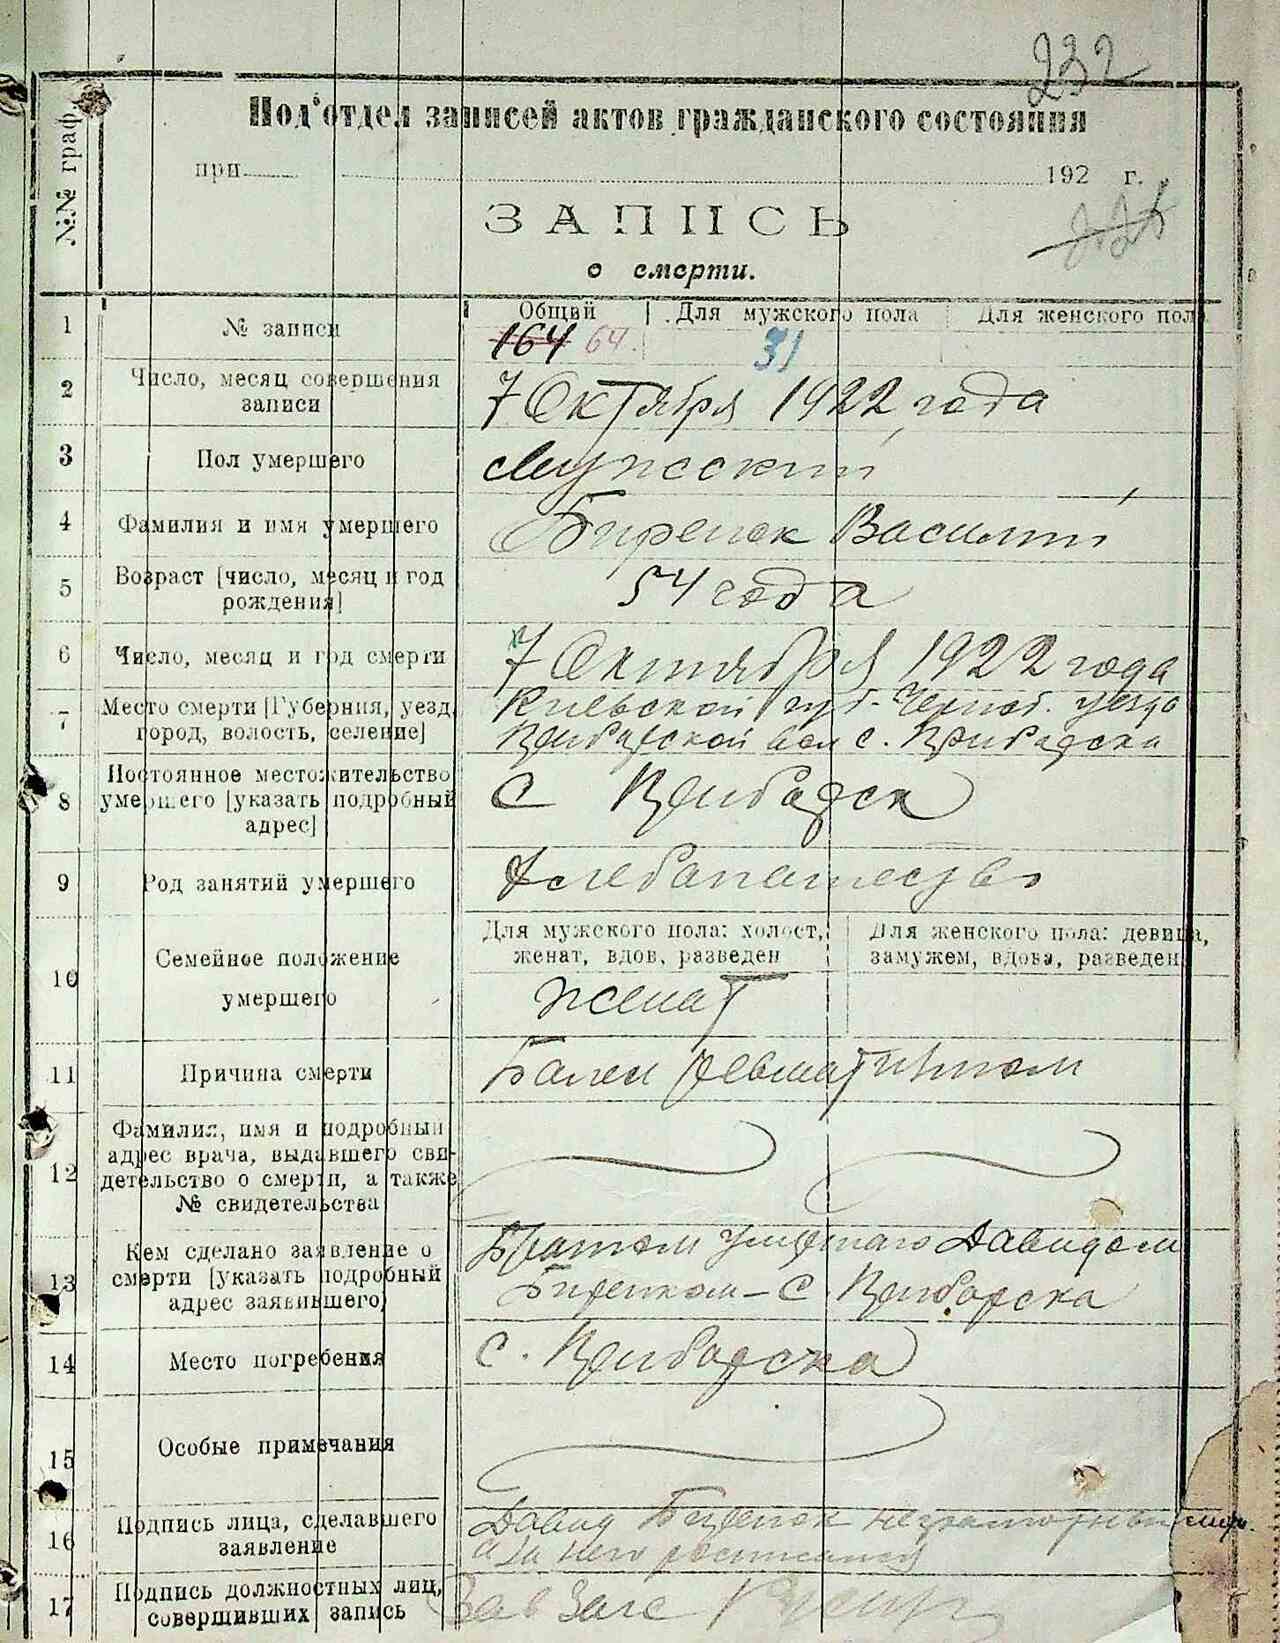 232
Под'отдел записей актов гражданского состояния
при 192 г.
ЗАПИСЬ
о смерти.
№№ граф
Общий Для мужского пола Для женского пола
1 № записи 164 64. 31
2 Число, месяц совершения
записи
7 Октября 1922 года
3 Пол умершего Мужеский
4 Фамилия и имя умершего Биренок Василий
5 Возраст [число, месяц и год
рождения]
54 года
6 Число, месяц и год смерти 7 Октября 1922 года
7 Место смерти [Губерния, уезд,
город, волость, селение]
Киевской губ. Черноб. уезда
вол с.
8 Постоянное местожительство
умершего [указать подробный
адрес]
С
9 Род занятий умершего Хлебапашество
10 Семейное положение
умершего
Для мужского пола: холост,
женат, вдов, разведен
Для женского пола: девица,
замужем, вдова, разведен
женат
11 Причина смерти Болен ревматизмом
12 Фамилия, имя и подробный
адрес врача, выдавшего сви-
детельство о смерти, а также
№ свидетельства
13 Кем сделано заявление о
смерти [указать подробный
адрес заявившего]
Братом умершаго Давидом
Биренком - С
14 Место погребения с.
15 Особые примечания
16 Подпись лица, сделавшего
заявление
Давид Биренок неграмотный
а за него росписался
17 Подпись должностных лиц,
совершивших запись
Зав Загс